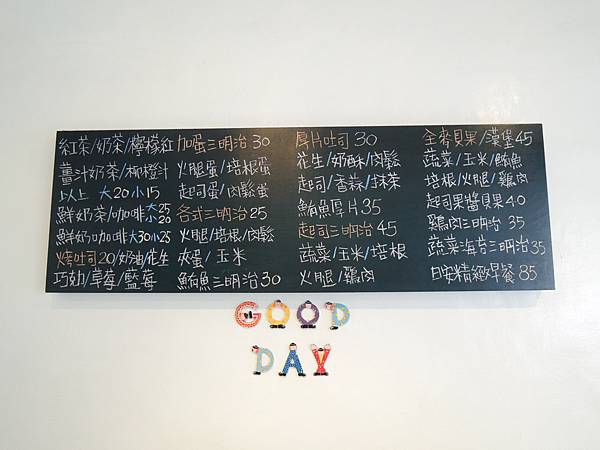 紅茶/奶茶/檸檬紅
薑汁奶茶/柳橙汁
以上 大20小15
鮮奶茶/咖啡大25小20
鮮奶咖啡大30小25
烤吐司20/奶油/花生
巧幼/草莓/藍莓
加蛋三明治30
火腿蛋/培根蛋
起司蛋/肉鬆蛋
各式三明治25
火腿/培根/肉鬆
夾蛋/玉米
鮪魚三明治30
厚片吐司30
花生/奶酥/肉鬆
起司/香蒜/抹茶
鮪魚厚片35
起司三明治45
蔬菜/玉米/培根
火腿/雞肉
全麥貝果/漢堡45
蔬菜/玉米/鮪魚
培根/火腿/雞肉
起司果醬貝果40
雞肉三明治35
蔬菜海苔三明治35
日安精緻早餐85
GOOD
DAY